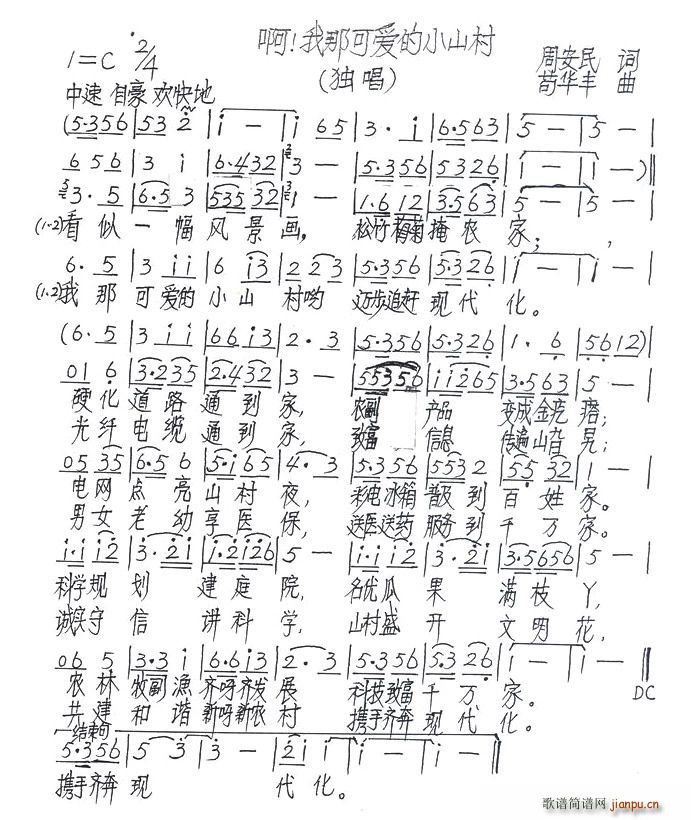 啊!我那可爱的小山村
1=C 2/4
(独唱)
周安民 词
苟华丰 曲
中速 自豪 欢快地
(5·356 | 53 2 | i — | i 65 | 3· i | 6·563 | 5 — | 5 — |
656 | 3 i | 6·432 | 3 — | 5·356 | 5326 | i — | i — )‖
3· 5 | 6·5 3 | 535 32 | 1 — | 1·6 12 | 3·563 | 5 — | 5 — |
(1·2)看似一幅风景画, 松竹 掩农家;
6· 5 | 3 ii | 6 i3 | 2 23 | 5·356 | 5·326 | i — | i — |
(1·2)我那可爱的小山村哟 迈步追赶现代化。
(6· 5 | 3 ii | 66i3 | 2· 3 | 5·356 | 5·326 | 1· 6 | 5612) |
01 6 | 3·235 | 2·432 | 3 — | 55356 | ii265 | 3·563 | 5 — |
硬化道路通到家, 农副产品变成金疙瘩;
光纤电缆通到家, 致富信息传遍山旮旯;
05 35 | 6·5 6 | 5·i65 | 4· 3 | 5·356 | 5532 | 55 32 | 1 — |
电网点亮山村夜, 彩电冰箱普及到百姓家。
男女老幼享医保, 送医送药服务到千万家。
i·i i2 | 3· 2i | i·2i26 | 5 — | i·i i2 | 3· 2i | 3·5656 | 5 — |
科学规划建庭院, 名优瓜果满枝丫,
诚实守信讲科学, 山村盛开文明花,
06 5 | 3·3 i | 6·6i3 | 2· 3 | 5·356 | 5·3 26 | i — | i — ‖
DC
农林牧副渔齐呼齐发展 科技致富千万家。
共建和谐新呼新农村 携手齐奔现代化。
结束句
5·356 | 5 3 | 3 — | 2i i | i — | i — ‖
携手齐奔现代化。
歌谱简谱网
jianpu.cn